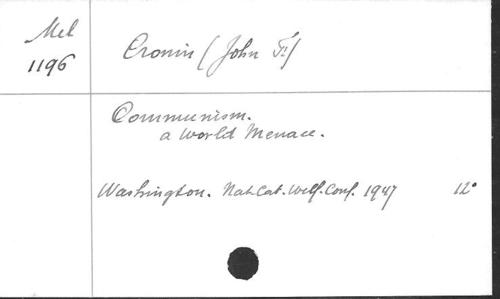 Mel
1196
Cronin (John F.)
Communism.
a World Menace.
Washington. Nat. Cat. Welf. Conf. 1947 12°